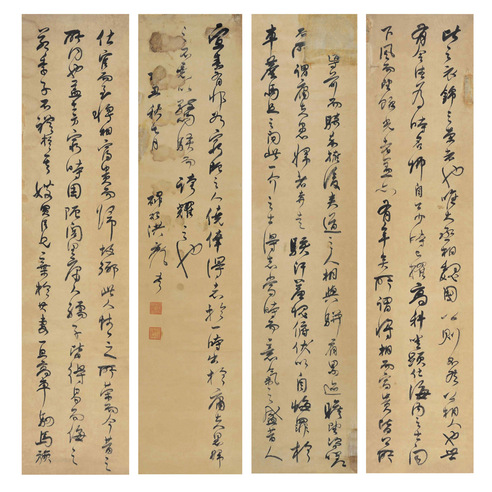 仕宦而至將相富貴而歸故鄉此人情之所榮而今昔之
所同也蓋士方窮時困阨閭里庸人孺子皆得易而侮之
若季子不禮於其嫂買臣見棄於其妻一旦高車駟馬旗
導前而騎卒擁後夾道之人相與駢肩累迹瞻望咨嗟
而所謂庸夫愚婦者奔走駭汗羞愧俯伏以自悔罪於
車塵馬足之間此一介之士得志當時而意氣之盛昔人
比之衣錦之榮者也惟大丞相魏國公則不然公相人也世
有令德為時名卿自公少時已擢高科登顯仕海內之士聞
下風而望餘光者蓋亦有年矣所謂將相而富貴皆公所
宜素有非如窮阨之人僥倖得志於一時出於庸夫愚婦
之不意以驚駭而誇耀之也
丑秋七月 洪 書